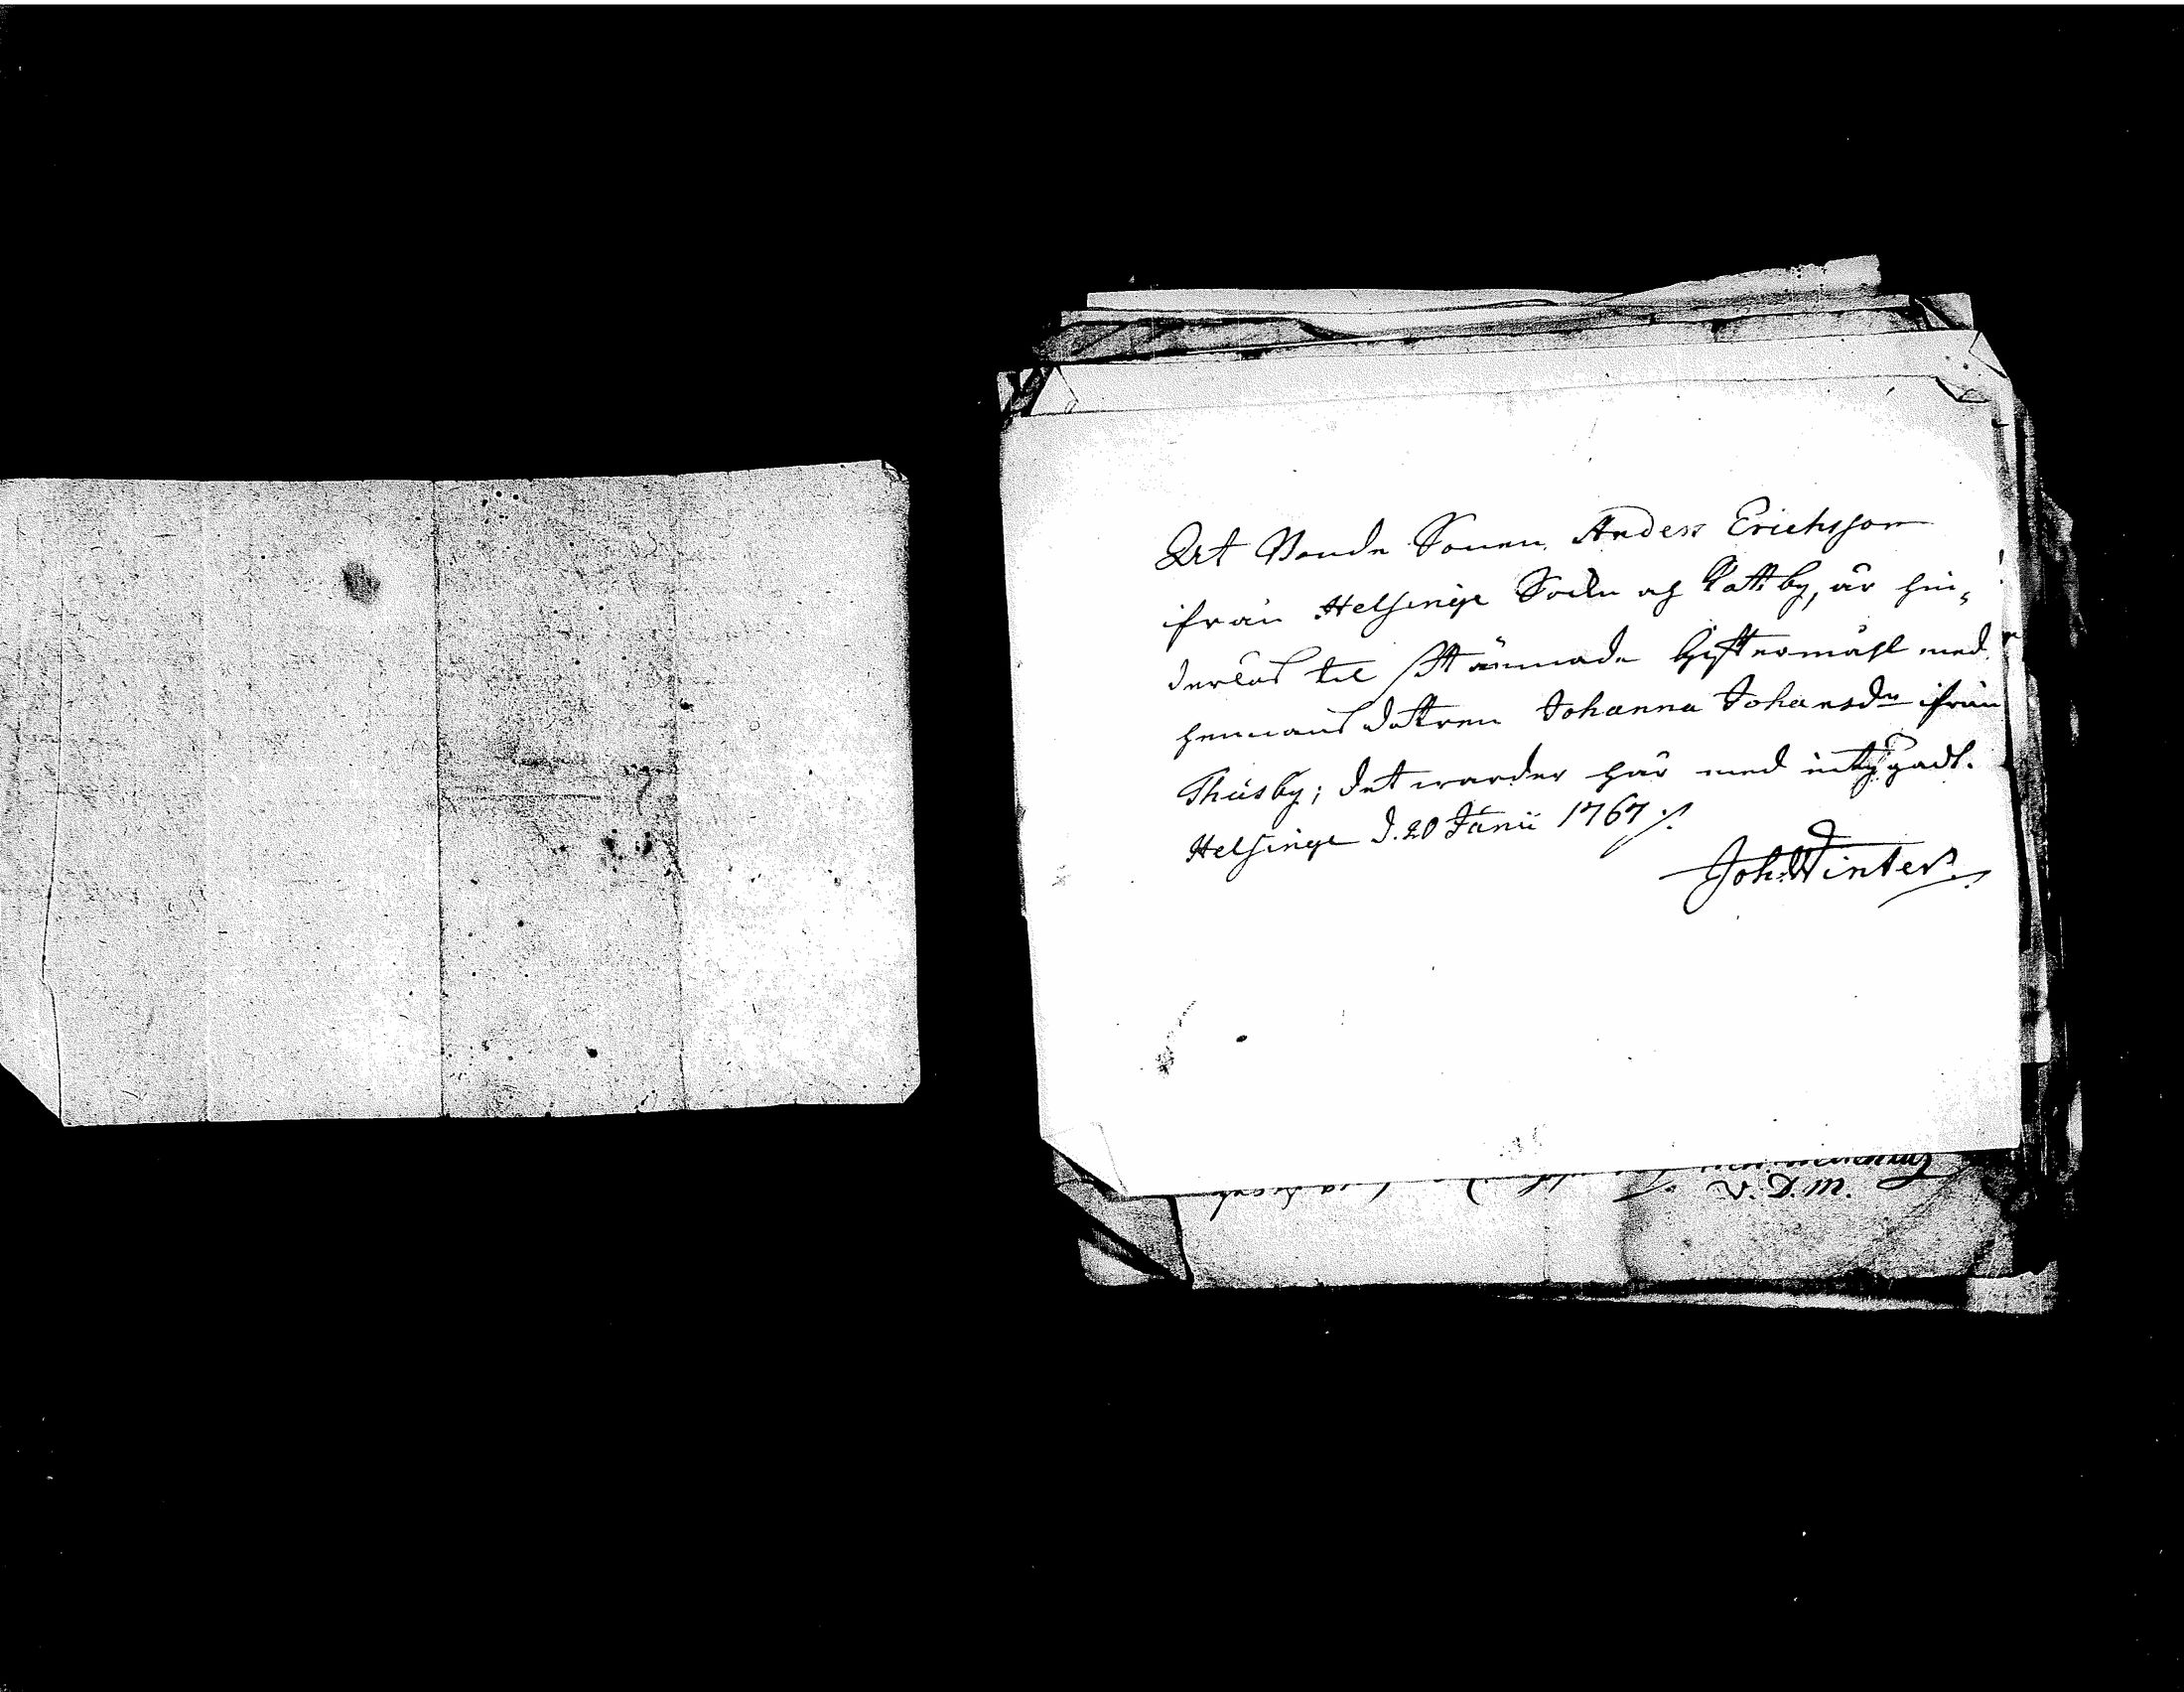 At Bonde Sonen Anders Erichsson
ifrån Helsinge Sokn og Kattby, är hin,
derlös til stämnade Gifftermåhl med
hemans dottren Johanna Johansdr ifrån
Thusby; det warder här med intygadt.
Helsinge d. 20 Junii 1767 ./.
Joh: Winter.
M. D. N.